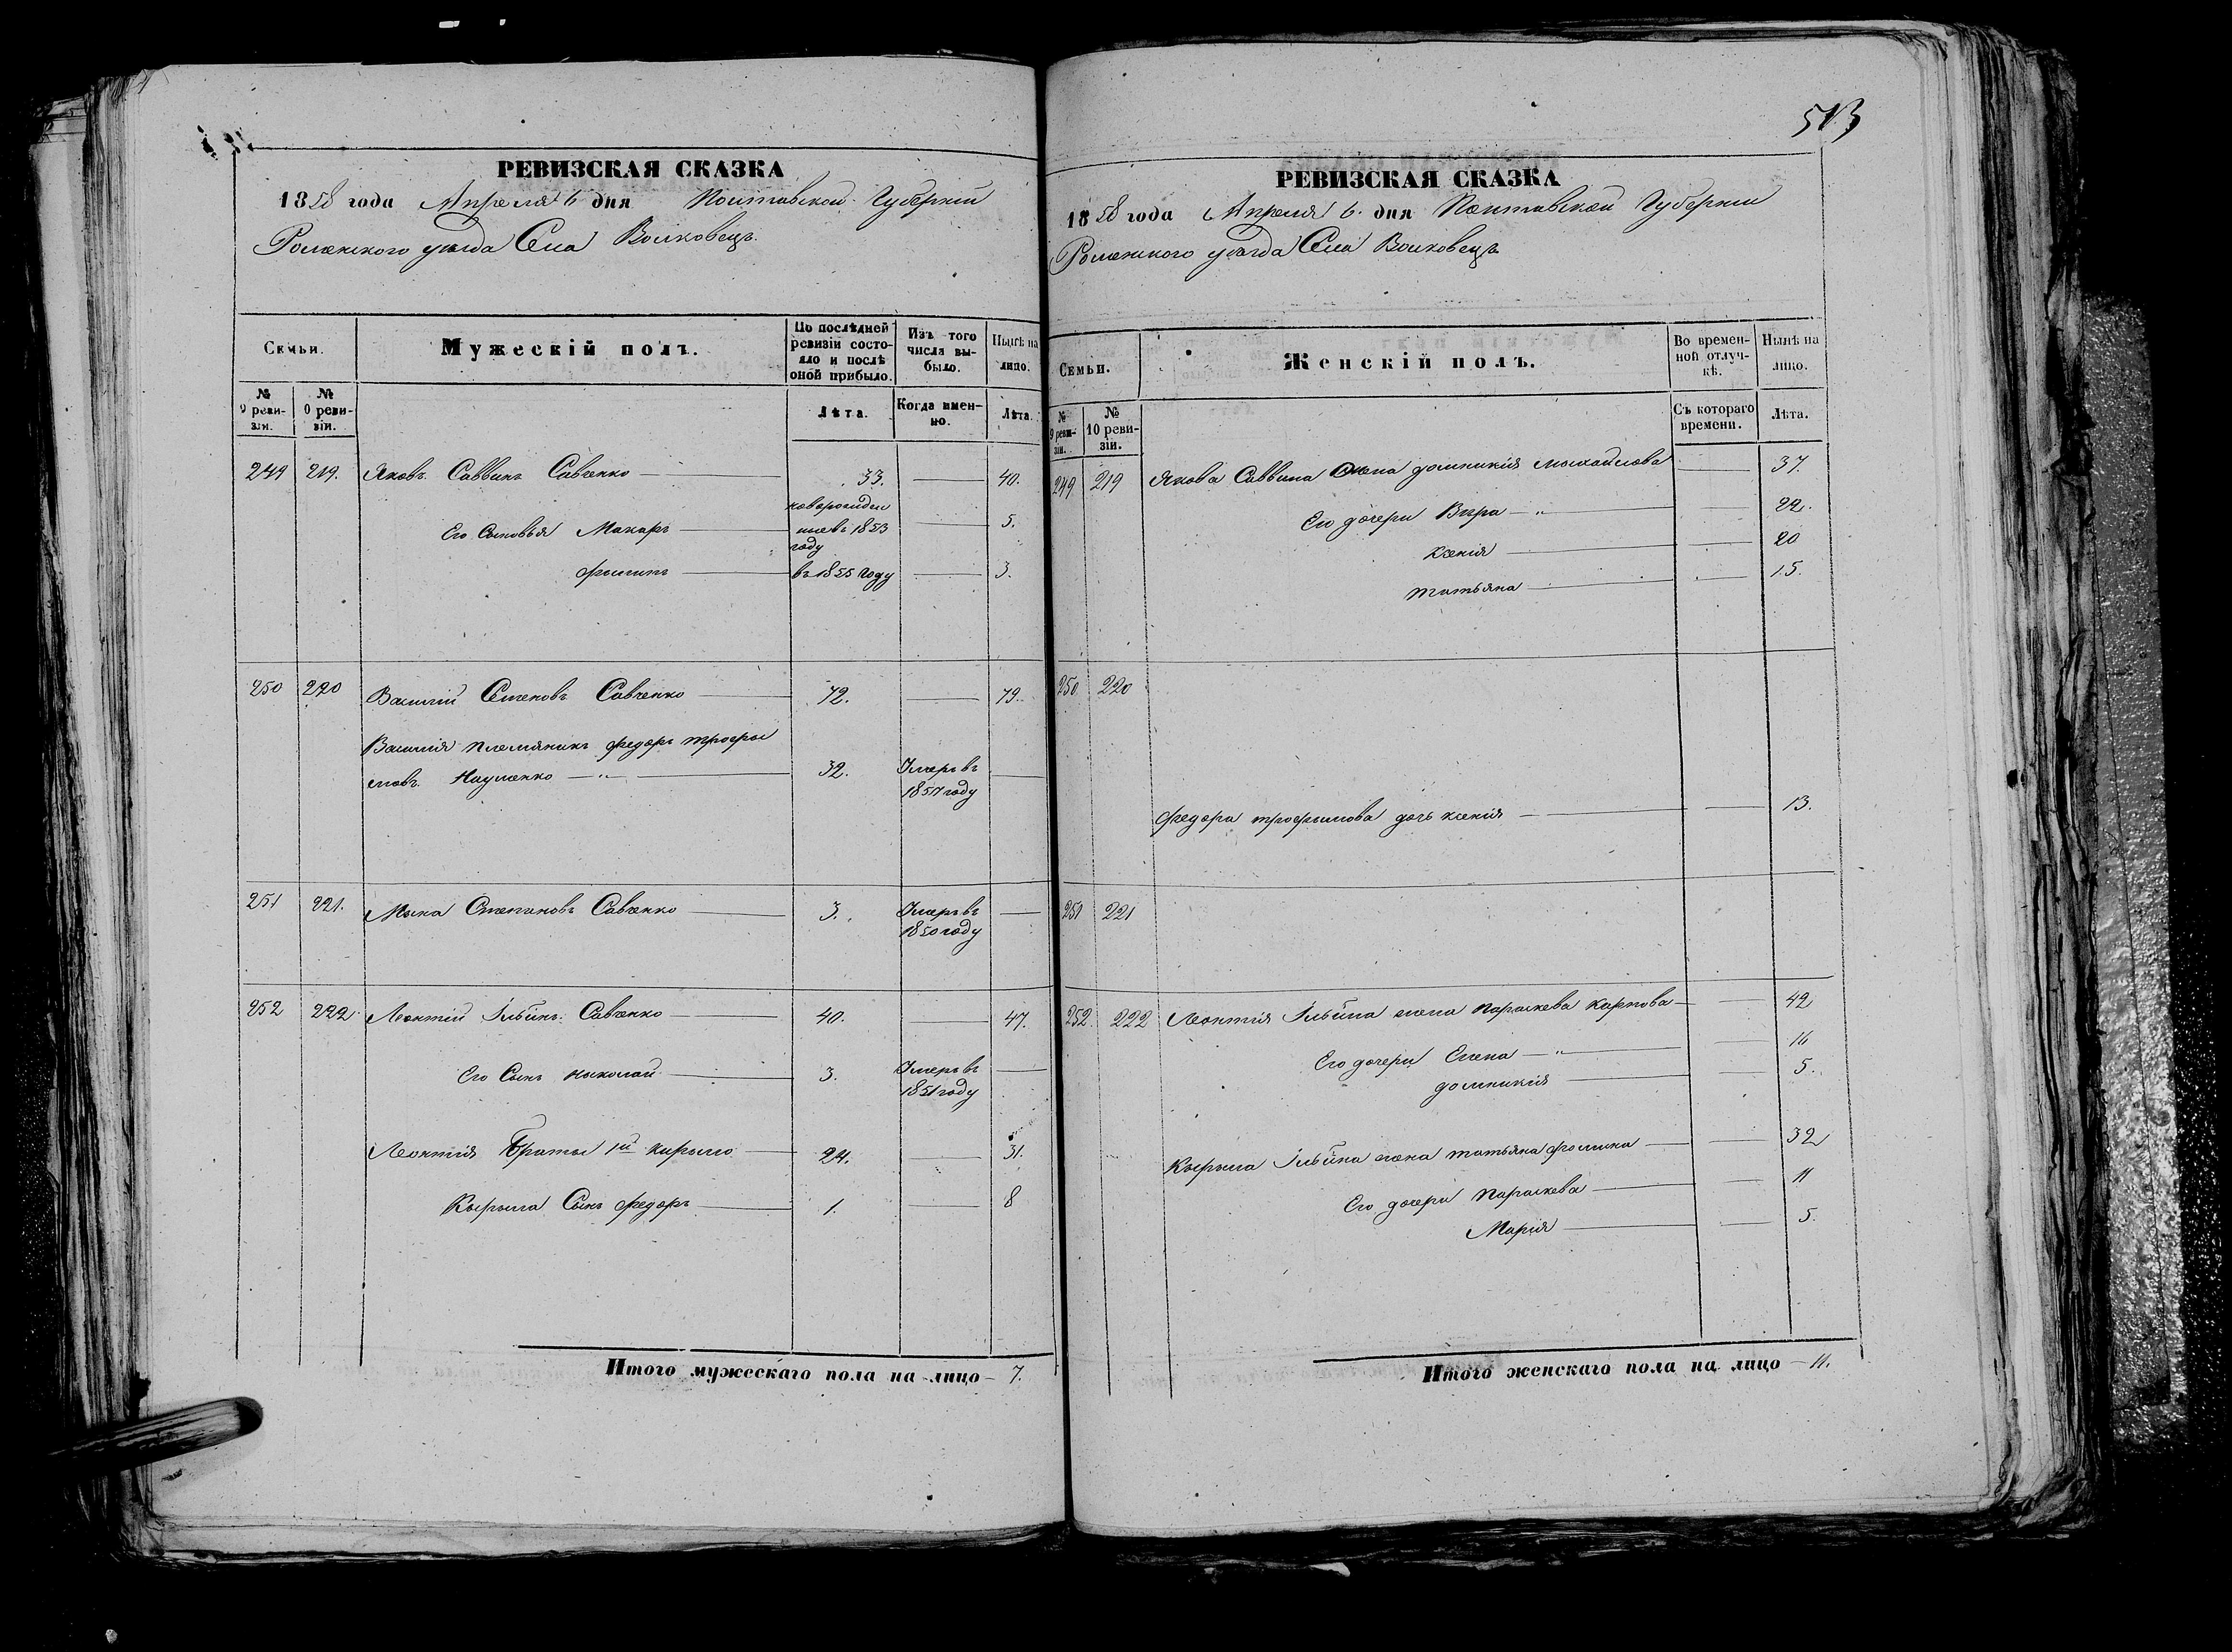 РЕВИЗСКАЯ СКАЗКА
1858 года Апреля 6 дня Полтавской Губернии
Роменского уезда Села Волковецъ.
Семьи.
Мужескій полъ.
По послѣдней ревизіи состояло и послѣ оной прибыло.
Изъ того числа выбыло.
Нынѣ на лицо.
№ 9 ревизіи.
№ 0 ревизіи.
Лѣта.
Когда именно.
Лѣта.
249 219. Яковъ Саввинъ Савченко 33. 40.
Его Сыновья Макаръ новорожденные въ 1853 году 5.
Филипъ въ 1855 году 3.
250 220 Василій Семеновъ Савченко 72. 79.
Василія племяникъ Федоръ трофи
мовъ Науменко 32. Умеръ въ 1857 году
251 221. Мина Степановъ Савченко 3. Умеръ въ 1850 году
252 222. Леонтій Ільинъ Савченко 40. 47.
Его Сынъ николай 3. Умеръ въ 1851 году
Леонтія Браты 1й кирыло 24. 31.
Кырыла Сынъ Федоръ 1. 8
Итого мужескаго пола на лицо 7.
513
РЕВИЗСКАЯ СКАЗКА
1858 года Апреля 6. дня Полтавской Губернии
Роменского уезда Села Волковецъ
Семьи.
Женскій полъ.
Во временной отлучкѣ.
Нынѣ на лицо.
№ 9 ревизіи.
№ 10 ревизіи.
Съ котораго времени.
Лѣта.
249 219 Якова Саввина жена домникія михайлова 37.
Его дочери Вѣра 22.
Ксенія 20
татьяна 15.
250 220
Федора трофимова дочь ксенія 13.
251 221
252. 222 Леонтія Ільина жена параскева карпова 42
Его дочери Елена 16
домникія 5.
Кырыла Ільина жена татьяна фомина 32
Его дочери параскева 11
Марія 5.
Итого женскаго пола на лицо 11.